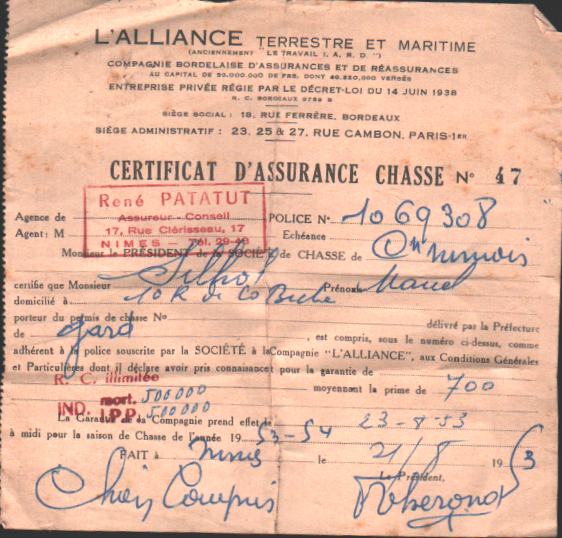 L'ALLIANCE TERRESTRE ET MARITIME
(ANCIENNEMENT "LE TRAVAIL I. A. R. D.")
COMPAGNIE BORDELAISE D'ASSURANCES ET DE RÉASSURANCES
AU CAPITAL DE 50.000.000 DE FRS. DONT 40.250.000 VERSÉS
ENTREPRISE PRIVÉE RÉGIE PAR LE DÉCRET-LOI DU 14 JUIN 1938
R. C. BORDEAUX 9789 B
SIÈGE SOCIAL : 18, RUE FERRÈRE, BORDEAUX
SIÈGE ADMINISTRATIF : 23, 25 & 27, RUE CAMBON, PARIS-1ER
CERTIFICAT D'ASSURANCE CHASSE No 47
René PATATUT
Assureur-Conseil
17, Rue Clérisseau, 17
NIMES - Tél. 29-43
Agence de
POLICE No 1069308
Agent : M
Echéance
Monsieur le PRÉSIDENT de la SOCIÉTÉ de CHASSE de
certifie que Monsieur Silhol Prénoms Marcel
domicilié à 10 R de la Biche
porteur du permis de chasse No délivré par la Préfecture
de Gard, est compris, sous le numéro ci-dessus, comme
adhérent à la police souscrite par la SOCIÉTÉ à la Compagnie "L'ALLIANCE", aux Conditions Générales
et Particulières dont il déclare avoir pris connaissance pour la garantie de
R. C. illimitée
moyennant la prime de 700
IND. mort. 500000
I.P.P. 500000
La Garantie de la Compagnie prend effet le 23-8-53
à midi pour la saison de Chasse de l'année 1953-54
FAIT à Nimes le 21/8 1953
Le Président,